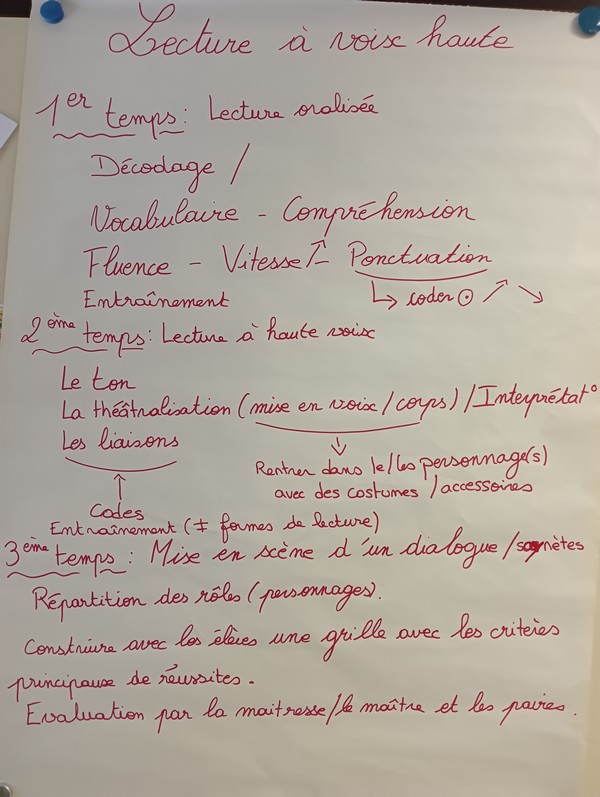 Lecture à voix haute
1er temps : Lecture oralisée
Décodage /
Vocabulaire - Compréhension
Fluence - Vitesse /- Ponctuation
Entraînement ↳ coder ⊙ ↗ ↘
2ème temps : Lecture à haute voix
Le ton
La théâtralisation (mise en voix / corps) / Interprétat°
Les liaisons
Rentrer dans le/les personnage(s)
avec des costumes / accessoires
Codes
Entraînement (≠ formes de lecture)
3ème temps : Mise en scène d'un dialogue / saynètes
Répartition des rôles (personnages).
Construire avec les élèves une grille avec les critères
principaux de réussites.
Evaluation par la maitresse/le maître et les paires.